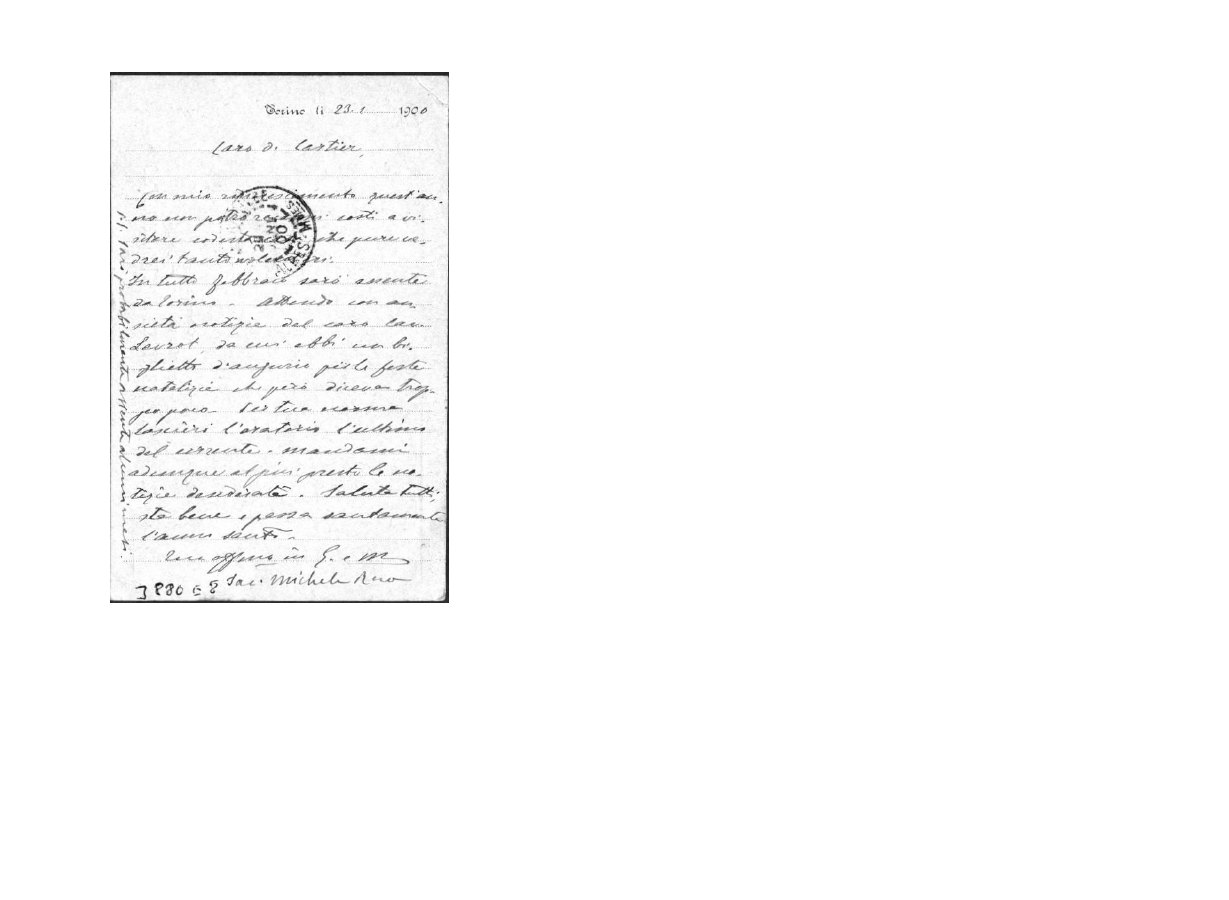 Torino li 23-1 1900
Caro D. Cartier,
Con mio rincrescimento quest'an-
no non potrò recarmi costì a vi-
sitare codesta che pure ve-
drei tanto volentieri.
In tutto febbraio sarò assente
da Torino - Attendo con an-
sietà notizie del caro Can.
Levrot, da cui ebbi un bi-
glietto d'augurio per le feste
natalizie che però diceva trop-
po poco - Per tua norma
lascierò l'oratorio l'ultimo
del corrente. Mandami
adunque al più presto le no-
tizie desiderate. Saluta tutti,
sta bene e passa santamente
l'anno santo -
Tuo affmo in G. e M
Sac. Michele Rua
P.S. Sarò probabilmente assente alcuni mesi.
3880 E 8